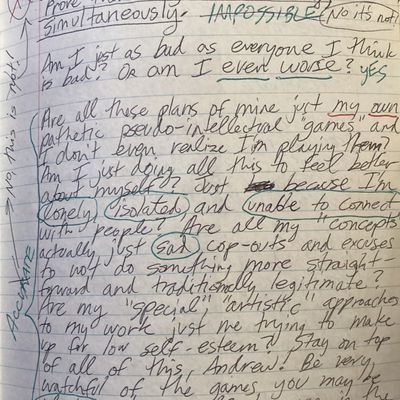 simultaneously. IMPOSSIBLE (No it's not!
Am I just as bad as everyone I think
is bad? Or am I even worse? YES
Are all these plans of mine just my own
pathetic pseudo-intellectual "games" and
I don't even realize I'm playing them?
Am I just doing all this to feel better
about myself? Just because I'm
lonely, isolated and unable to connect
with people? Are all my "concepts"
actually just sad cop-outs and excuses
to not do something more straight-
forward and traditionally legitimate?
Are my "special", "artistic" approaches
to my work just me trying to make
up for low self-esteem? Stay on top
of all of this, Andrew! Be very,
watchful of the games you may be
No, this is not!
ACCURATE